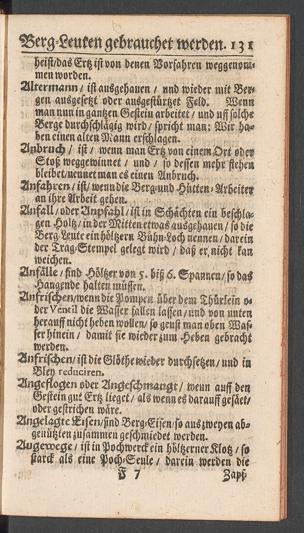 Berg-Leuten gebrauchet werden. 131
heist/das Ertz ist von denen Vorfahren weggenom-
men worden.
Altermann/ ist ausgehauen / und wieder mit Ber-
gen ausgesetzt oder ausgestürtzet Feld. Wenn
man nun in gantzen Gestein arbeitet/ und uff solche
Berge durchschlägig wird / spricht man: Wir ha-
ben einen alten Mann erschlagen.
Anbruch/ ist / wenn man Ertz von einem Ort oder
Stoß weggewinnet / und / so dessen mehr stehen
bleibet/nennet man es einen Anbruch.
Anfahren/ ist/ wenn die Berg-und Hütten-Arbeiter
an ihre Arbeit gehen.
Anfall/ oder Anpfahl/ ist in Schächten ein beschla-
gen Holtz/ in der Mitten etwas ausgehauen / so die
Berg-Leute ein höltzern Bühn-Loch nennen/ darein
der Trag-Stempel gelegt wird / daß er nicht kan
weichen.
Anfälle / sind Höltzer von 5. biß 6. Spannen/ so das
Hangende halten müssen.
Anfrischen/wenn die Pompen über dem Thürlein o-
der Ventil die Wasser fallen lassen/und von unten
herauff nicht heben wollen/ so geust man oben Was-
ser hinein / damit sie wieder zum Heben gebracht
werden.
Anfrischen/ ist die Glöthe wieder durchsetzen/ und in
Bley reduciren.
Angeflogen oder Angeschmaugt / wenn auff den
Gestein gut Ertz lieget/ als wenn es darauff gesäet/
oder gestrichen wäre.
Angelagte Eisen/sind Berg-Eisen/so aus zweyen ab-
genützten zusammen geschmiedet werden.
Augewege / ist in Pochwerck ein höltzerner Klotz/ so
starck als eine Poch-Seule / darein werden die
F 7 Zapf-